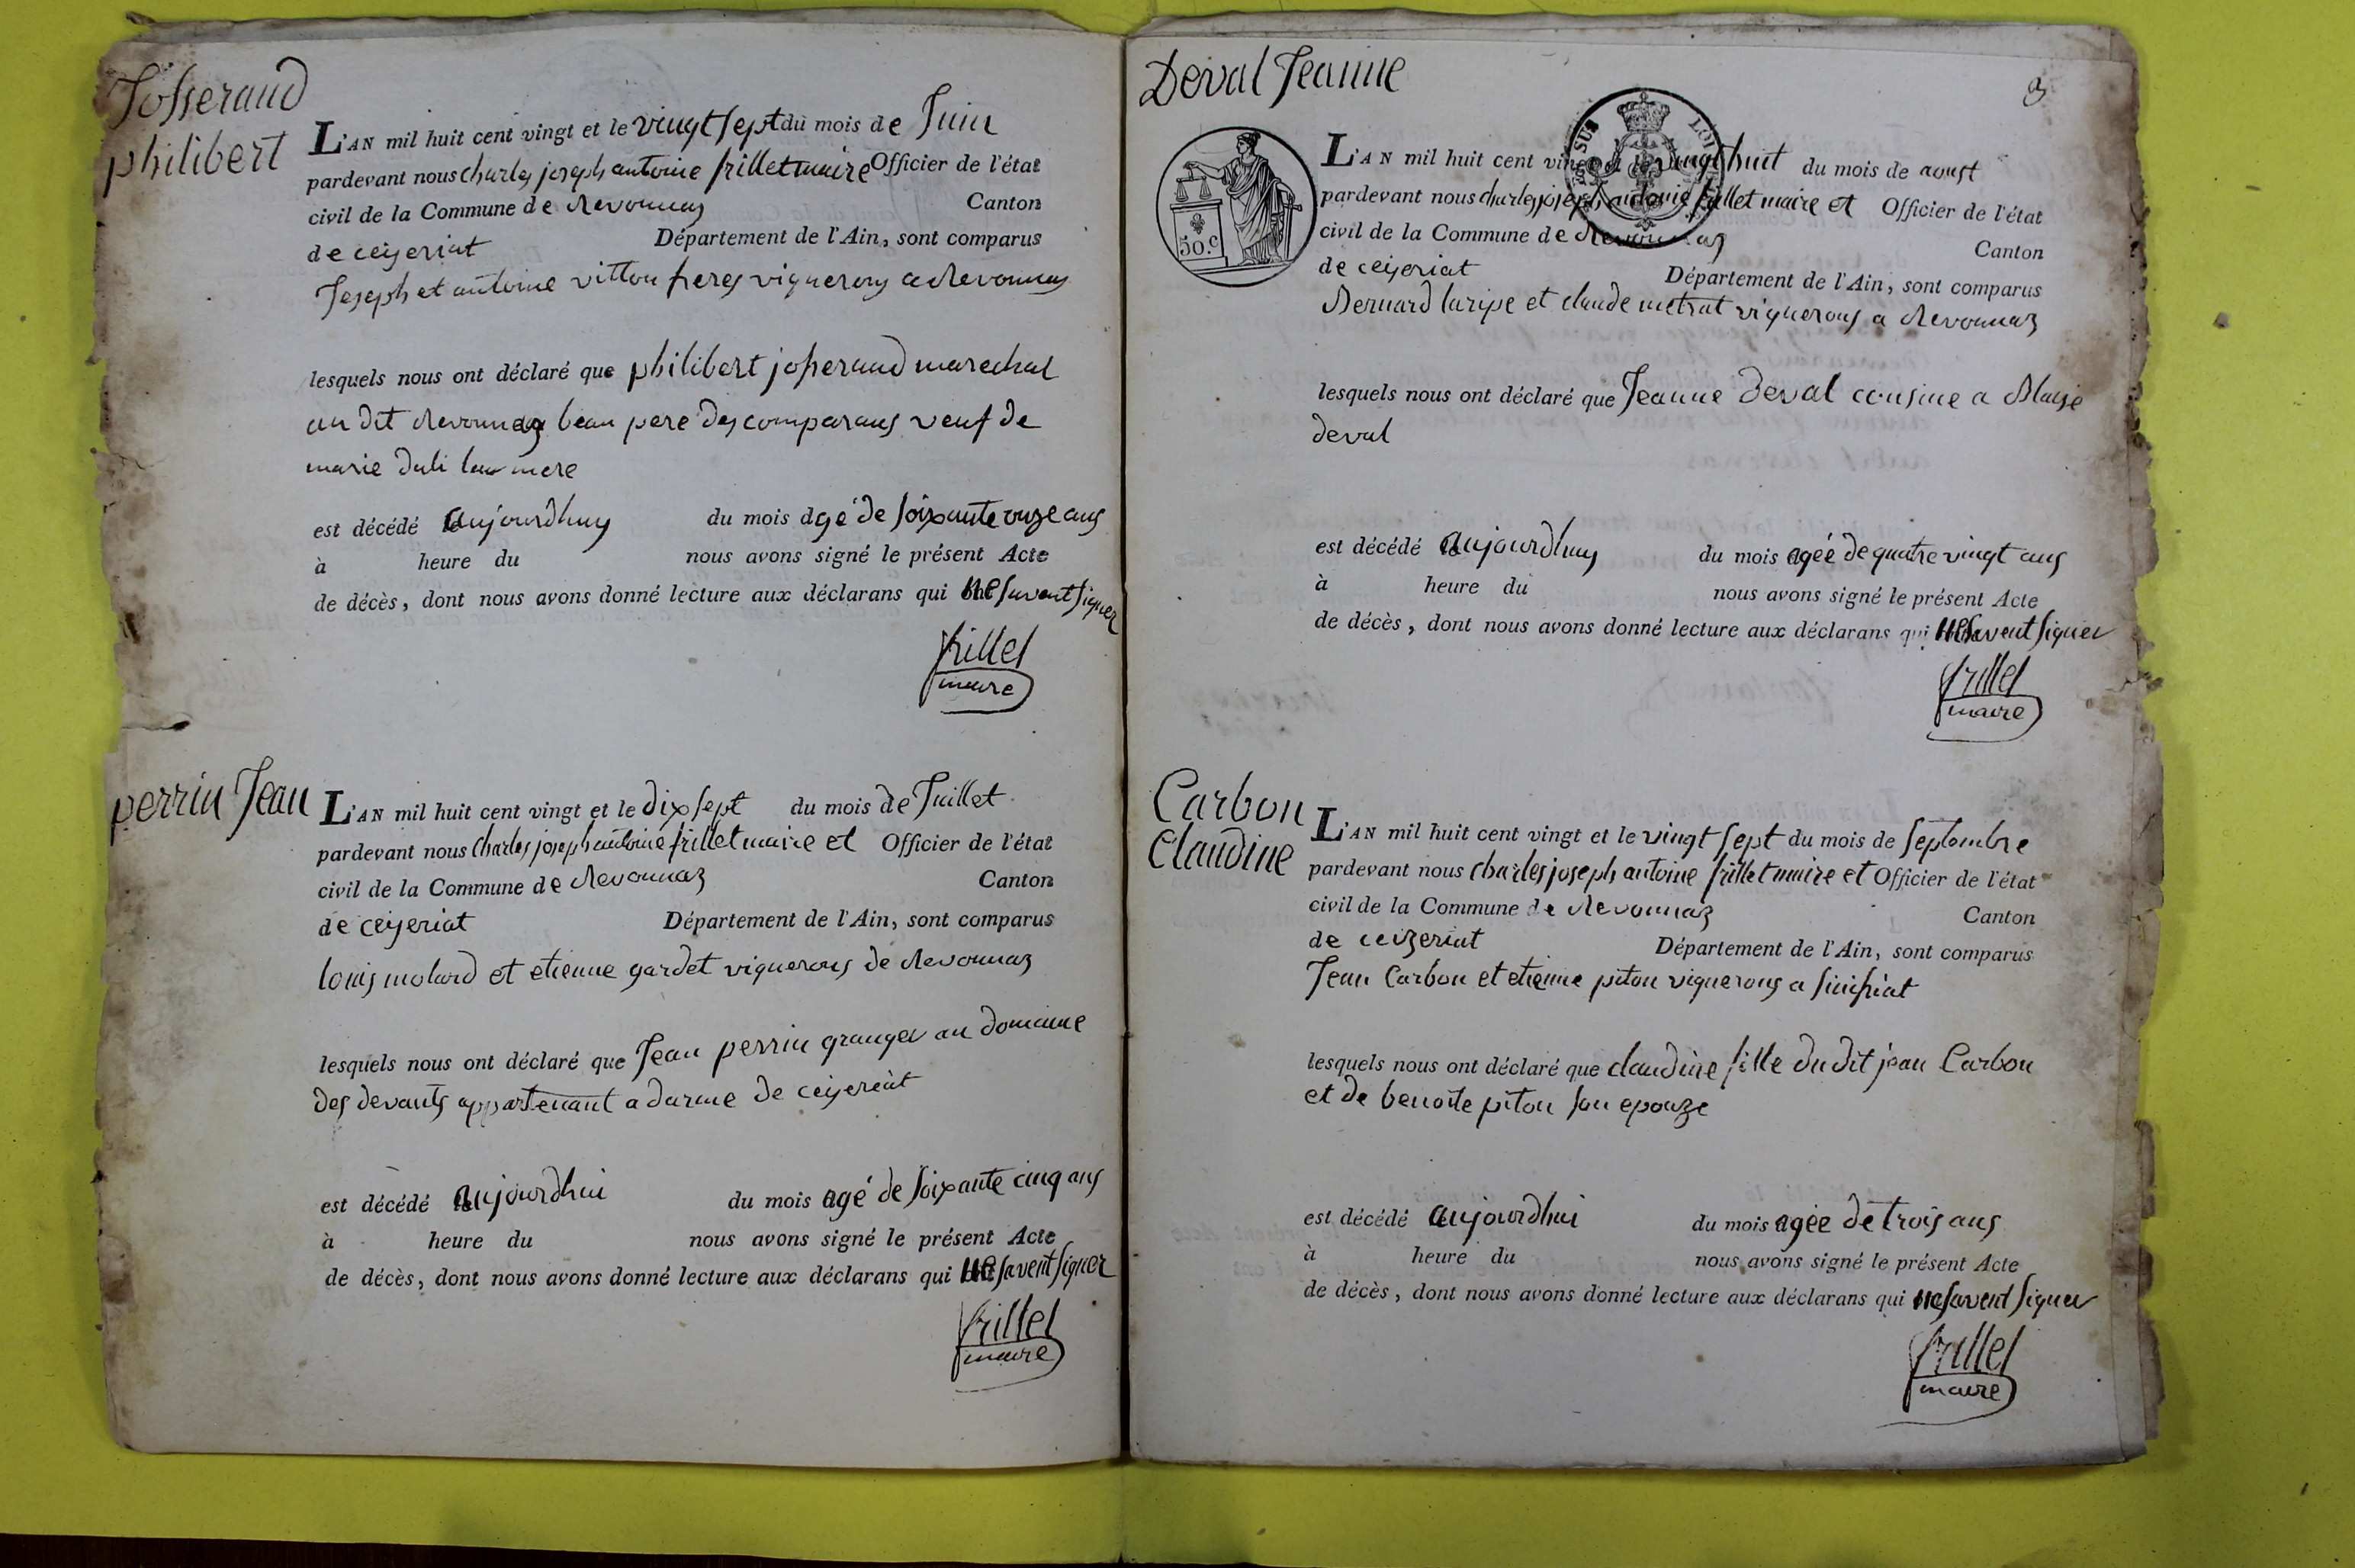 Josserand
philibert
L'AN mil huit cent vingt et le vingt sept du mois de Juin
pardevant nous charles joseph antoine frillet maire Officier de l'état
civil de la Commune de Revonnaz Canton
de ceyseriat Département de l'Ain, sont comparus
Joseph et antoine vitton freres vignerons a Revonnaz
lesquels nous ont déclaré que philibert josserand marechal
au dit Revonnaz beau pere des comparans veuf de
marie mere
est décédé aujourdhuy du mois agé de soixante onze ans
à heure du nous avons signé le présent Acte
de décès, dont nous avons donné lecture aux déclarans qui ne savent signer
frillet
maire
perrin Jean
L'AN mil huit cent vingt et le dix sept du mois de Juillet
pardevant nous Charles joseph antoine frillet maire et Officier de l'état
civil de la Commune de Revonnaz Canton
de ceyseriat Département de l'Ain, sont comparus
louis molard et etienne gardet vignerons de Revonnaz
lesquels nous ont déclaré que Jean perrin granger au domaine
des devants appartenant a darme de ceyseriat
est décédé aujourdhui du mois agé de soixante cinq ans
à heure du nous avons signé le présent Acte
de décès, dont nous avons donné lecture aux déclarans qui ne savent signer
frillet
maire
Deval Jeanne
3
50.c
SUS LOI
L'AN mil huit cent vingt et le vingt huit du mois de aoust
pardevant nous charles joseph antoine frillet maire et Officier de l'état
civil de la Commune de Revonnaz Canton
de ceyseriat Département de l'Ain, sont comparus
Bernard laripe et claude metrat vignerons a Revonnaz
lesquels nous ont déclaré que Jeanne Deval cousine a Blaise
deval
est décédé aujourdhuy du mois agée de quatre vingt ans
à heure du nous avons signé le présent Acte
de décès, dont nous avons donné lecture aux déclarans qui ne savent signer
frillet
maire
Carbon
Claudine
L'AN mil huit cent vingt et le vingt sept du mois de septembre
pardevant nous charles joseph antoine frillet maire et Officier de l'état
civil de la Commune de Revonnaz Canton
de ceizeriat Département de l'Ain, sont comparus
Jean Carbon et etienne piton vignerons a simsiat
lesquels nous ont déclaré que claudine fille du dit jean Carbon
et de benoite piton son epouze
est décédé aujourdhui du mois agée de trois ans
à heure du nous avons signé le présent Acte
de décès, dont nous avons donné lecture aux déclarans qui ne savent signer
frillet
maire